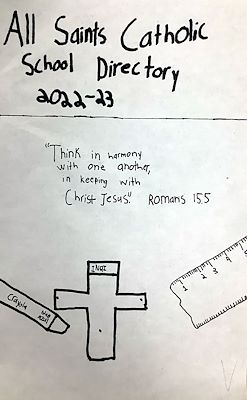 All Saints Catholic
School Directory
2022-23
"Think in harmony
with one another,
in keeping with
Christ Jesus." Romans 15:5
INRI
Crayola
1 2 3 4 5